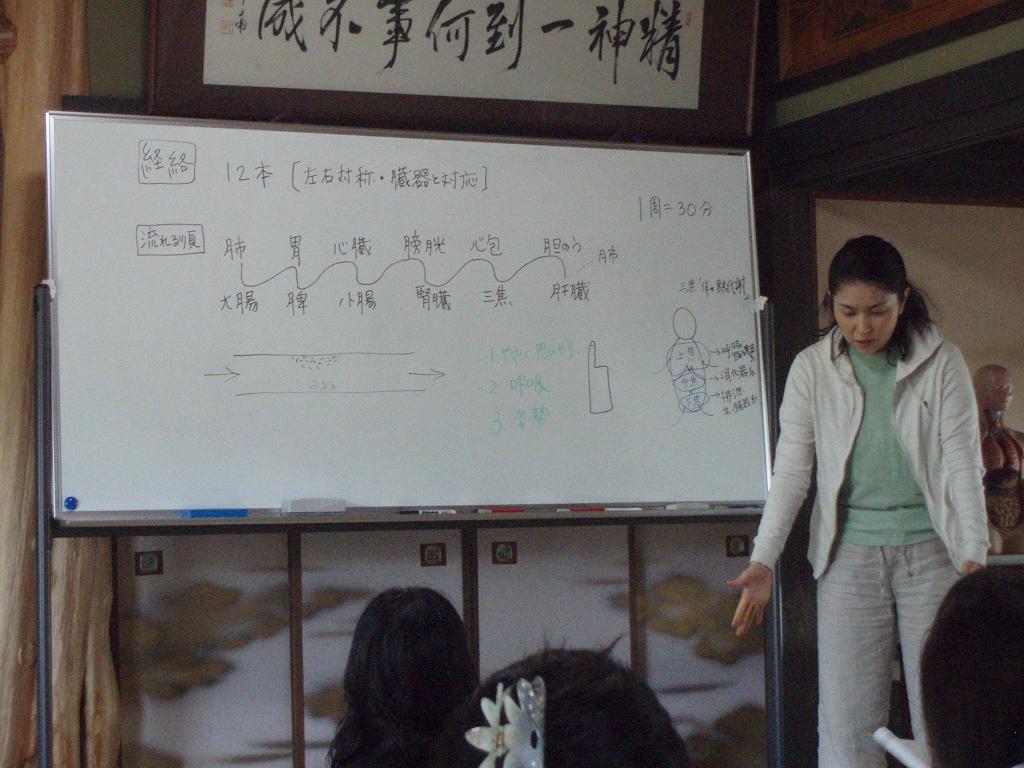 精神一到何事不成
経絡
12本 [左右対称・臓器と対応]
1周=30分
流れる順
肺 胃 心臓 膀胱 心包 胆のう 肺
大腸 脾 小腸 腎臓 三焦 肝臓
三焦「体の熱代謝」
上焦 →呼吸 循環器系
中焦 →消化器系
下焦 →排泄 生殖器系
2. 呼吸
3. 姿勢